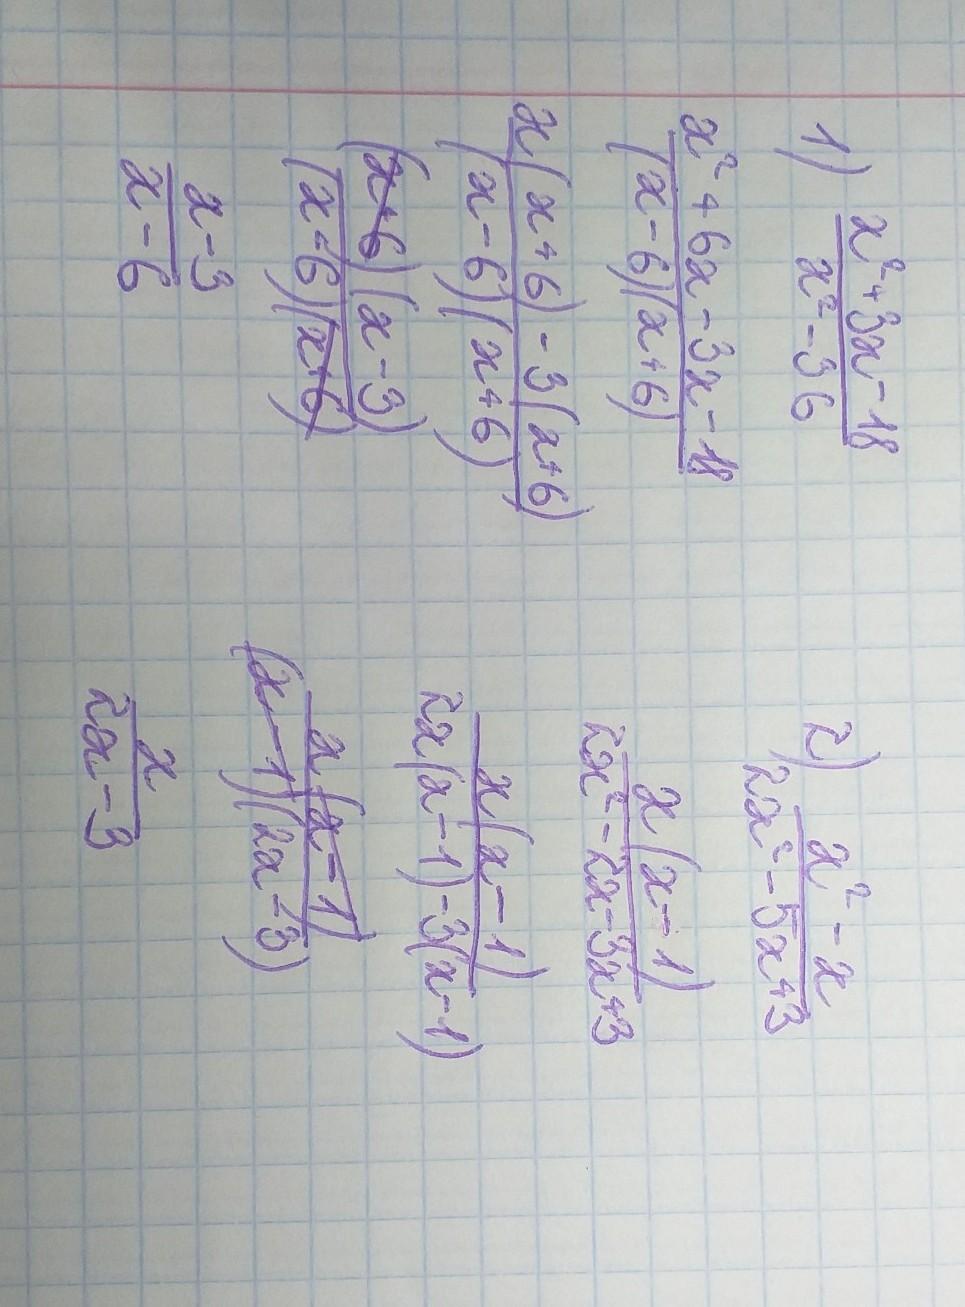 1) x²+3x-18
x²-36
x²+6x-3x-18
(x-6)(x+6)
x(x+6)-3(x+6)
(x-6)(x+6)
(x+6)(x-3)
(x+6)(x+6)
x-3
x-6
2) x²-x
2x²-5x+3
x(x-1)
2x²-2x-3x+3
x(x-1)
2x(x-1)-3(x-1)
x(x-1)
(x-1)(2x-3)
x
2x-3